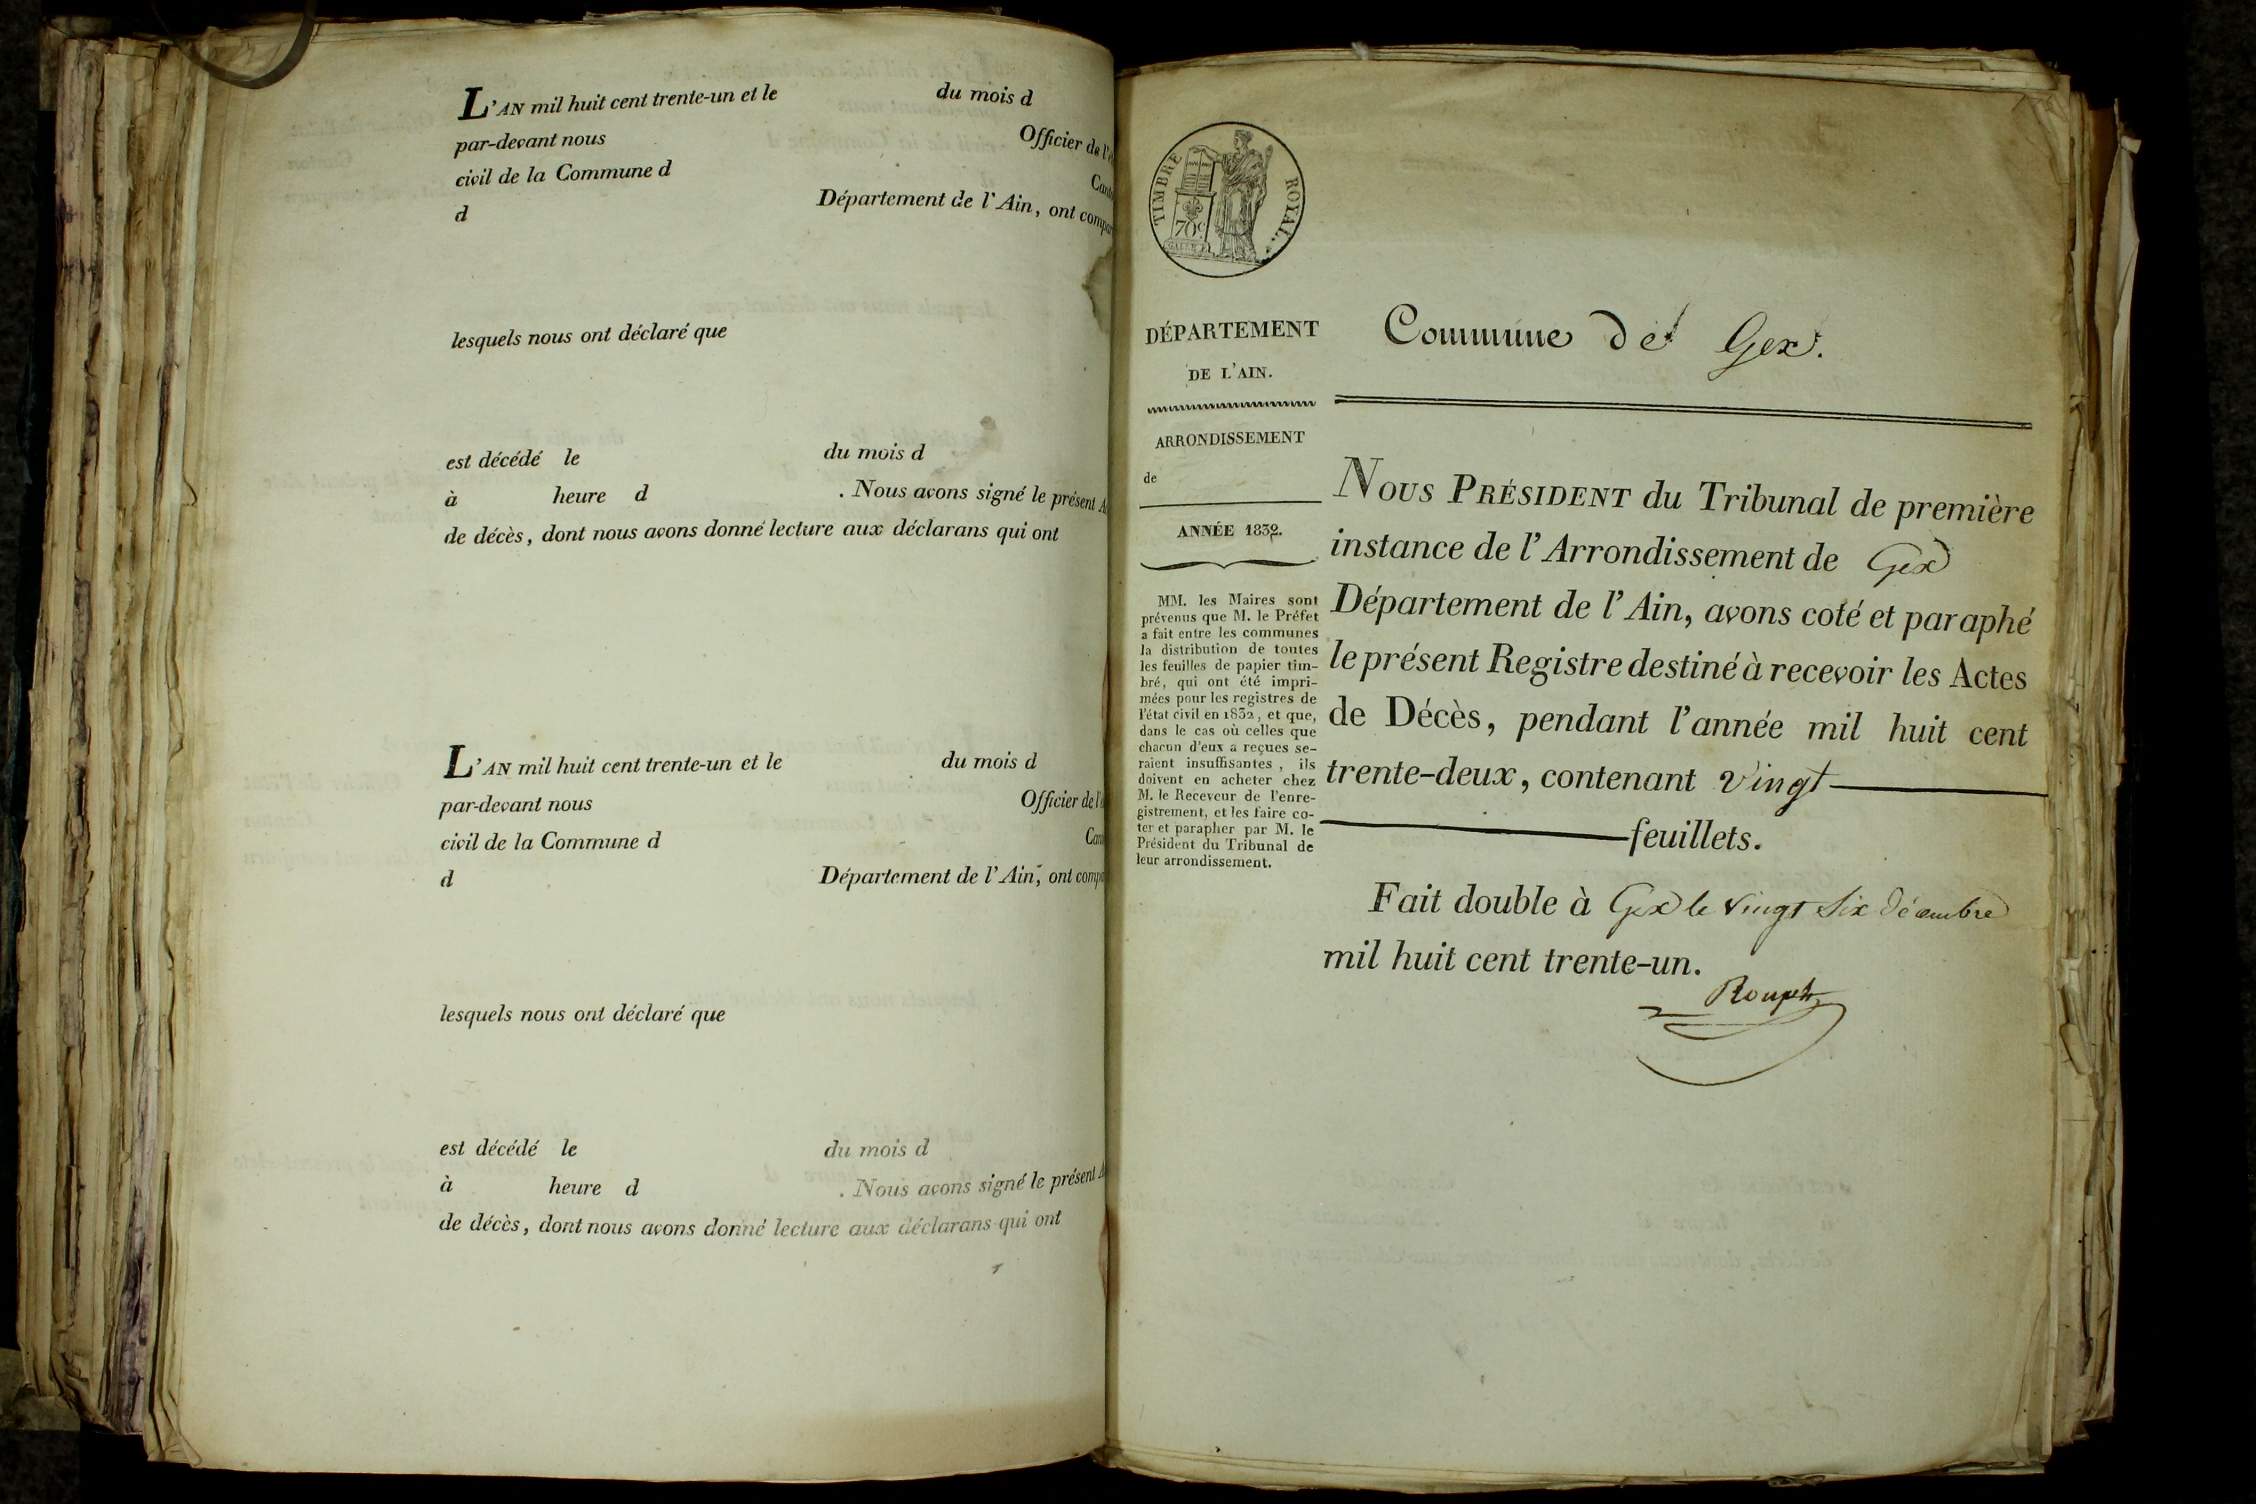 L'AN mil huit cent trente-un et le du mois d
par-devant nous Officier de l'é
civil de la Commune d Cant
d Département de l'Ain, ont compar
lesquels nous ont déclaré que
est décédé le du mois d
à heure d . Nous avons signé le présent A
de décès, dont nous avons donné lecture aux déclarans qui ont
L'AN mil huit cent trente-un et le du mois d
par-devant nous Officier de l'é
civil de la Commune d Can
d Département de l'Ain, ont compa
lesquels nous ont déclaré que
est décédé le du mois d
à heure d . Nous avons signé le présent A
de décès, dont nous avons donné lecture aux déclarans qui ont
TIMBRE ROYAL.
70c
DÉPARTEMENT
DE L'AIN.
ARRONDISSEMENT
de
ANNÉE 1832.
MM. les Maires sont
prévenus que M. le Préfet
a fait entre les communes
la distribution de toutes
les feuilles de papier tim-
bré, qui ont été impri-
mées pour les registres de
l'état civil en 1832, et que,
dans le cas où celles que
chacun d'eux a reçues se-
raient insuffisantes, ils
doivent en acheter chez
M. le Receveur de l'enre-
gistrement, et les faire co-
ter et parapher par M. le
Président du Tribunal de
leur arrondissement.
Commune de Gex.
NOUS PRÉSIDENT du Tribunal de première
instance de l'Arrondissement de Gex
Département de l'Ain, avons coté et paraphé
le présent Registre destiné à recevoir les Actes
de Décès, pendant l'année mil huit cent
trente-deux, contenant vingt
feuillets.
Fait double à Gex le vingt six décembre
mil huit cent trente-un.